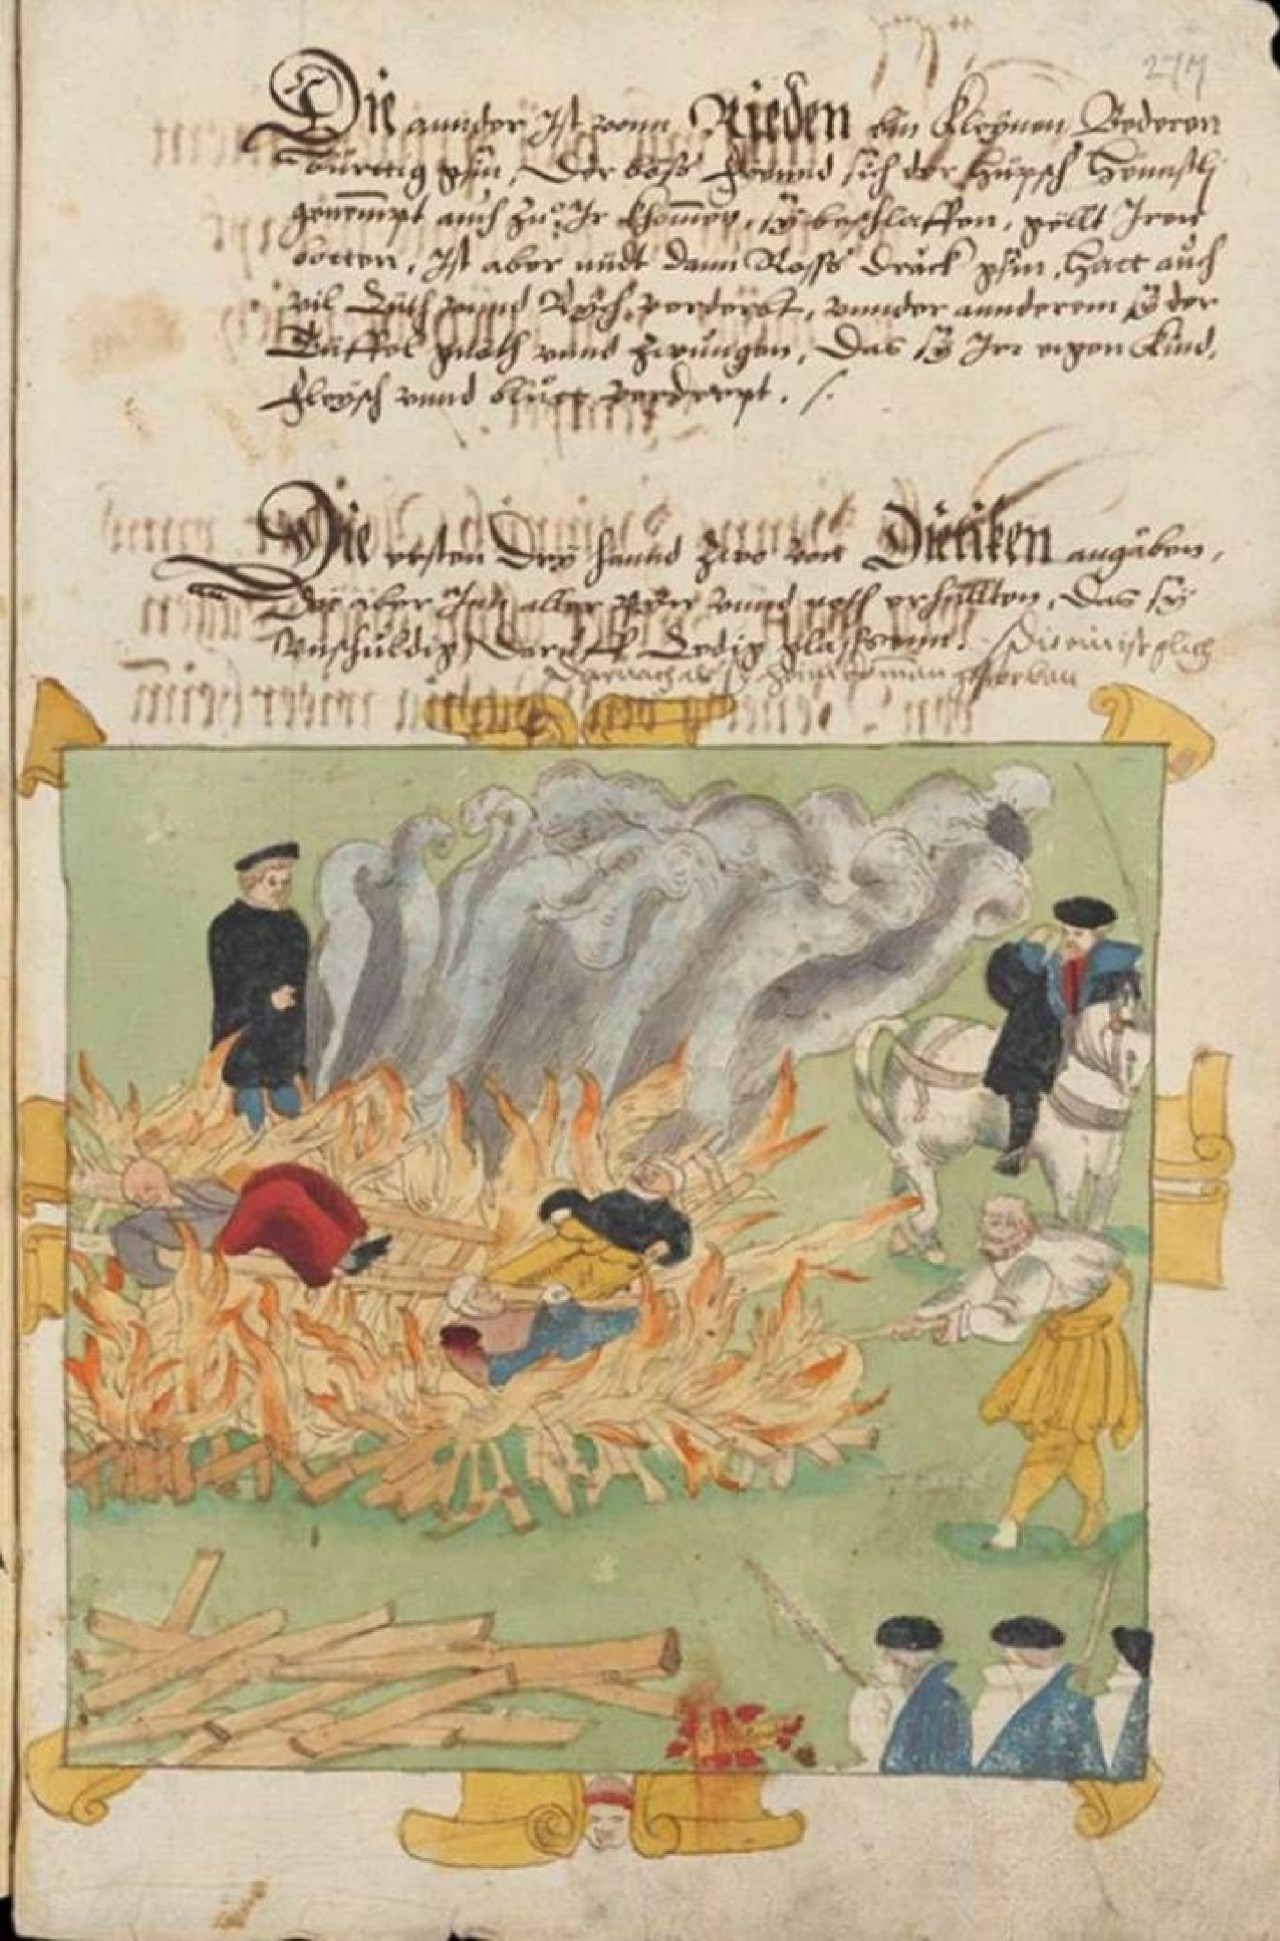 277
Die annder Ist vonn Rieden bin kleÿnen Baderen
bürttig gsin, Der böß fÿennd sich der hüpsch Hennsli
genempt auch zuͦ Ir khomen, sÿ beschlaffen, gellt Iren
botten, Ist aber nüdt dann Ross Dräck gsin, hatt auch
vil Lüth vnnd Vÿch verderbt, vnnder annderem sÿ der
Tüffel gnöth vnnd zwungen, Das sÿ Irr eigen Kind,
fleÿsch vnnd bluͦtt verderpt ./.
Die ersten Drÿ hannd zwo von Dietiken angäben,
Die aber Inn aller Pÿn vnnd noth erhüllten, Das sÿ
Vnschuldig, Daruff Ledig glassen. Die ein ist glich
Darnach als sÿ heim komen gstorben